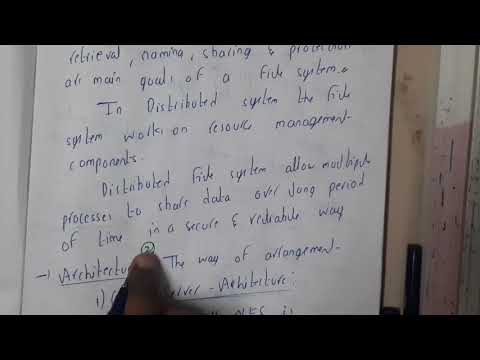 retrieval, naming, sharing & protection
are main goals of a File system.
In Distributed system the File
system works on resource management
components.
Distributed File system allow multiple
processes to share data over long period
of time in a secure & reliable way
2
→ Architecture The way of arrangement-
1) Server - Arthitecture:
NFS is